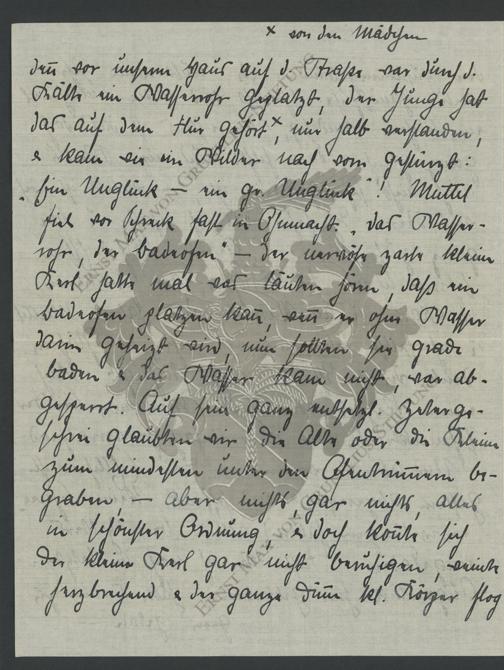 x von den Mädchen
deñ vor unserm Haus auf d. Straße war durch d.
Kälte ein Wasserrohr geplatzt, der Junge hat
das auf dem Flur gehört x, nur halb verstanden,
& kam wie ein Wilder nach vorn gestürzt:
„Ein Unglück – ein gr. Unglück"! Muttel
fiel vor Schreck fast in Ohnmacht. „das Wasser-
rohr, der Badeofen" – der nervöse zarte kleine
Kerl hatte mal was läuten hören, daß ein
Badeofen platzen kañ, weñ er ohne Wasser
darin geheizt wird, nun sollten sie grade
baden & das Wasser kam nicht, war ab-
gesperrt. Auf sein ganz entsetzl. Zeterge-
schrei glaubten wir die Alte oder die Kleine
zum mindesten unter den Ofentrüm̄ern be-
graben, – aber nichts, gar nichts, alles
in schönster Ordnung, & doch koñte sich
der kleine Kerl gar nicht beruhigen, weinte
herzbrechend & der ganze düñe kl. Körper flog